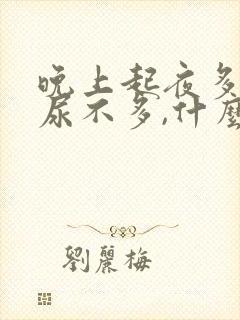 晚上起夜多
尿不多,什麼
劉麗梅